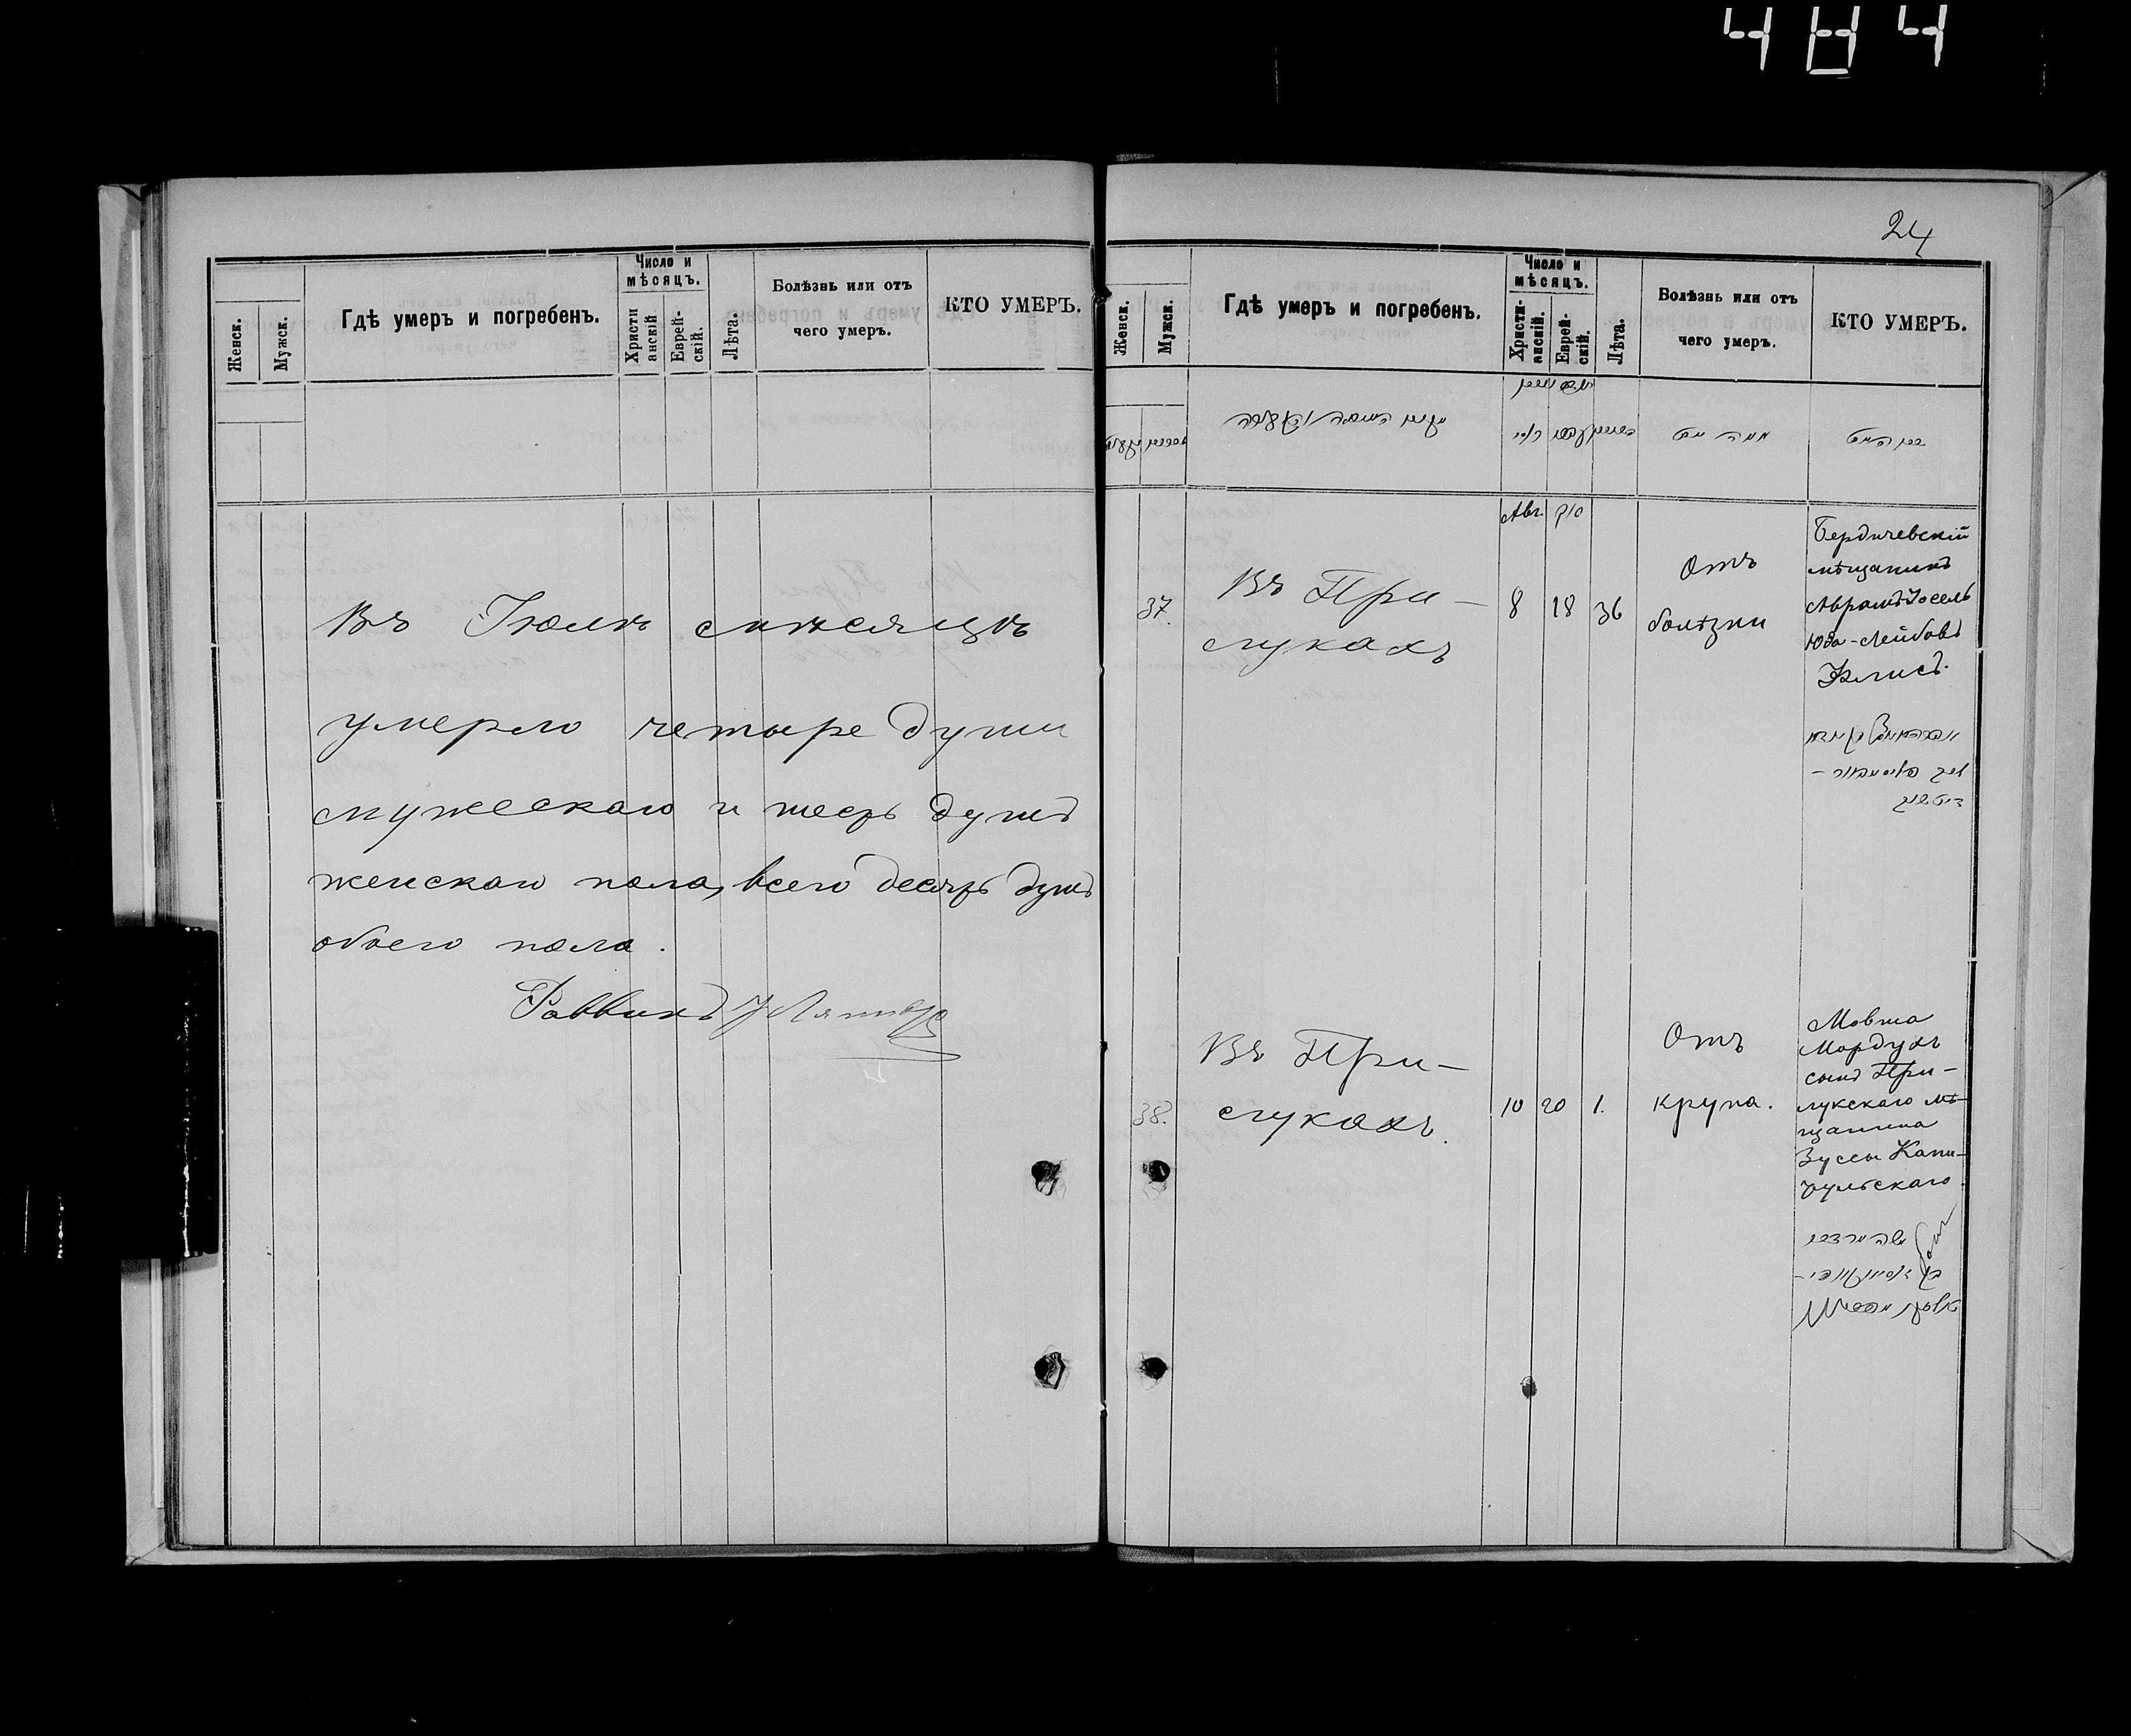 484
Женск.
Мужск.
Гдѣ умеръ и погребенъ.
Число и
мѣсяцъ.
Христи
анскій
Еврей-
скій.
Лѣта.
Болѣзнь или отъ
чего умеръ.
КТО УМЕРЪ.
Въ Іюлѣ мѣсяцѣ
умерло четыре души
мужескаго и шесть душъ
женскаго пола, всего десять душъ
обоего пола.
Раввинъ
24
Женск.
Мужск.
Гдѣ умеръ и погребенъ.
Число и
мѣсяцъ.
Христи-
анскій.
Еврей-
скій.
Лѣта.
Болѣзнь или отъ
чего умеръ.
КТО УМЕРЪ.
Авг.
37.
Въ При-
лукахъ
8
18
36
Отъ
болѣзни
Бердичевскій
мѣщанинъ
Аврамъ Іосель
Юда-Лейбовъ
38.
Въ При-
лукахъ.
10
20
1.
Отъ
крупа.
Мовша
Мордухъ
сынъ При-
лукскаго мѣ-
щанина
Зуссы Капи-
тульскаго